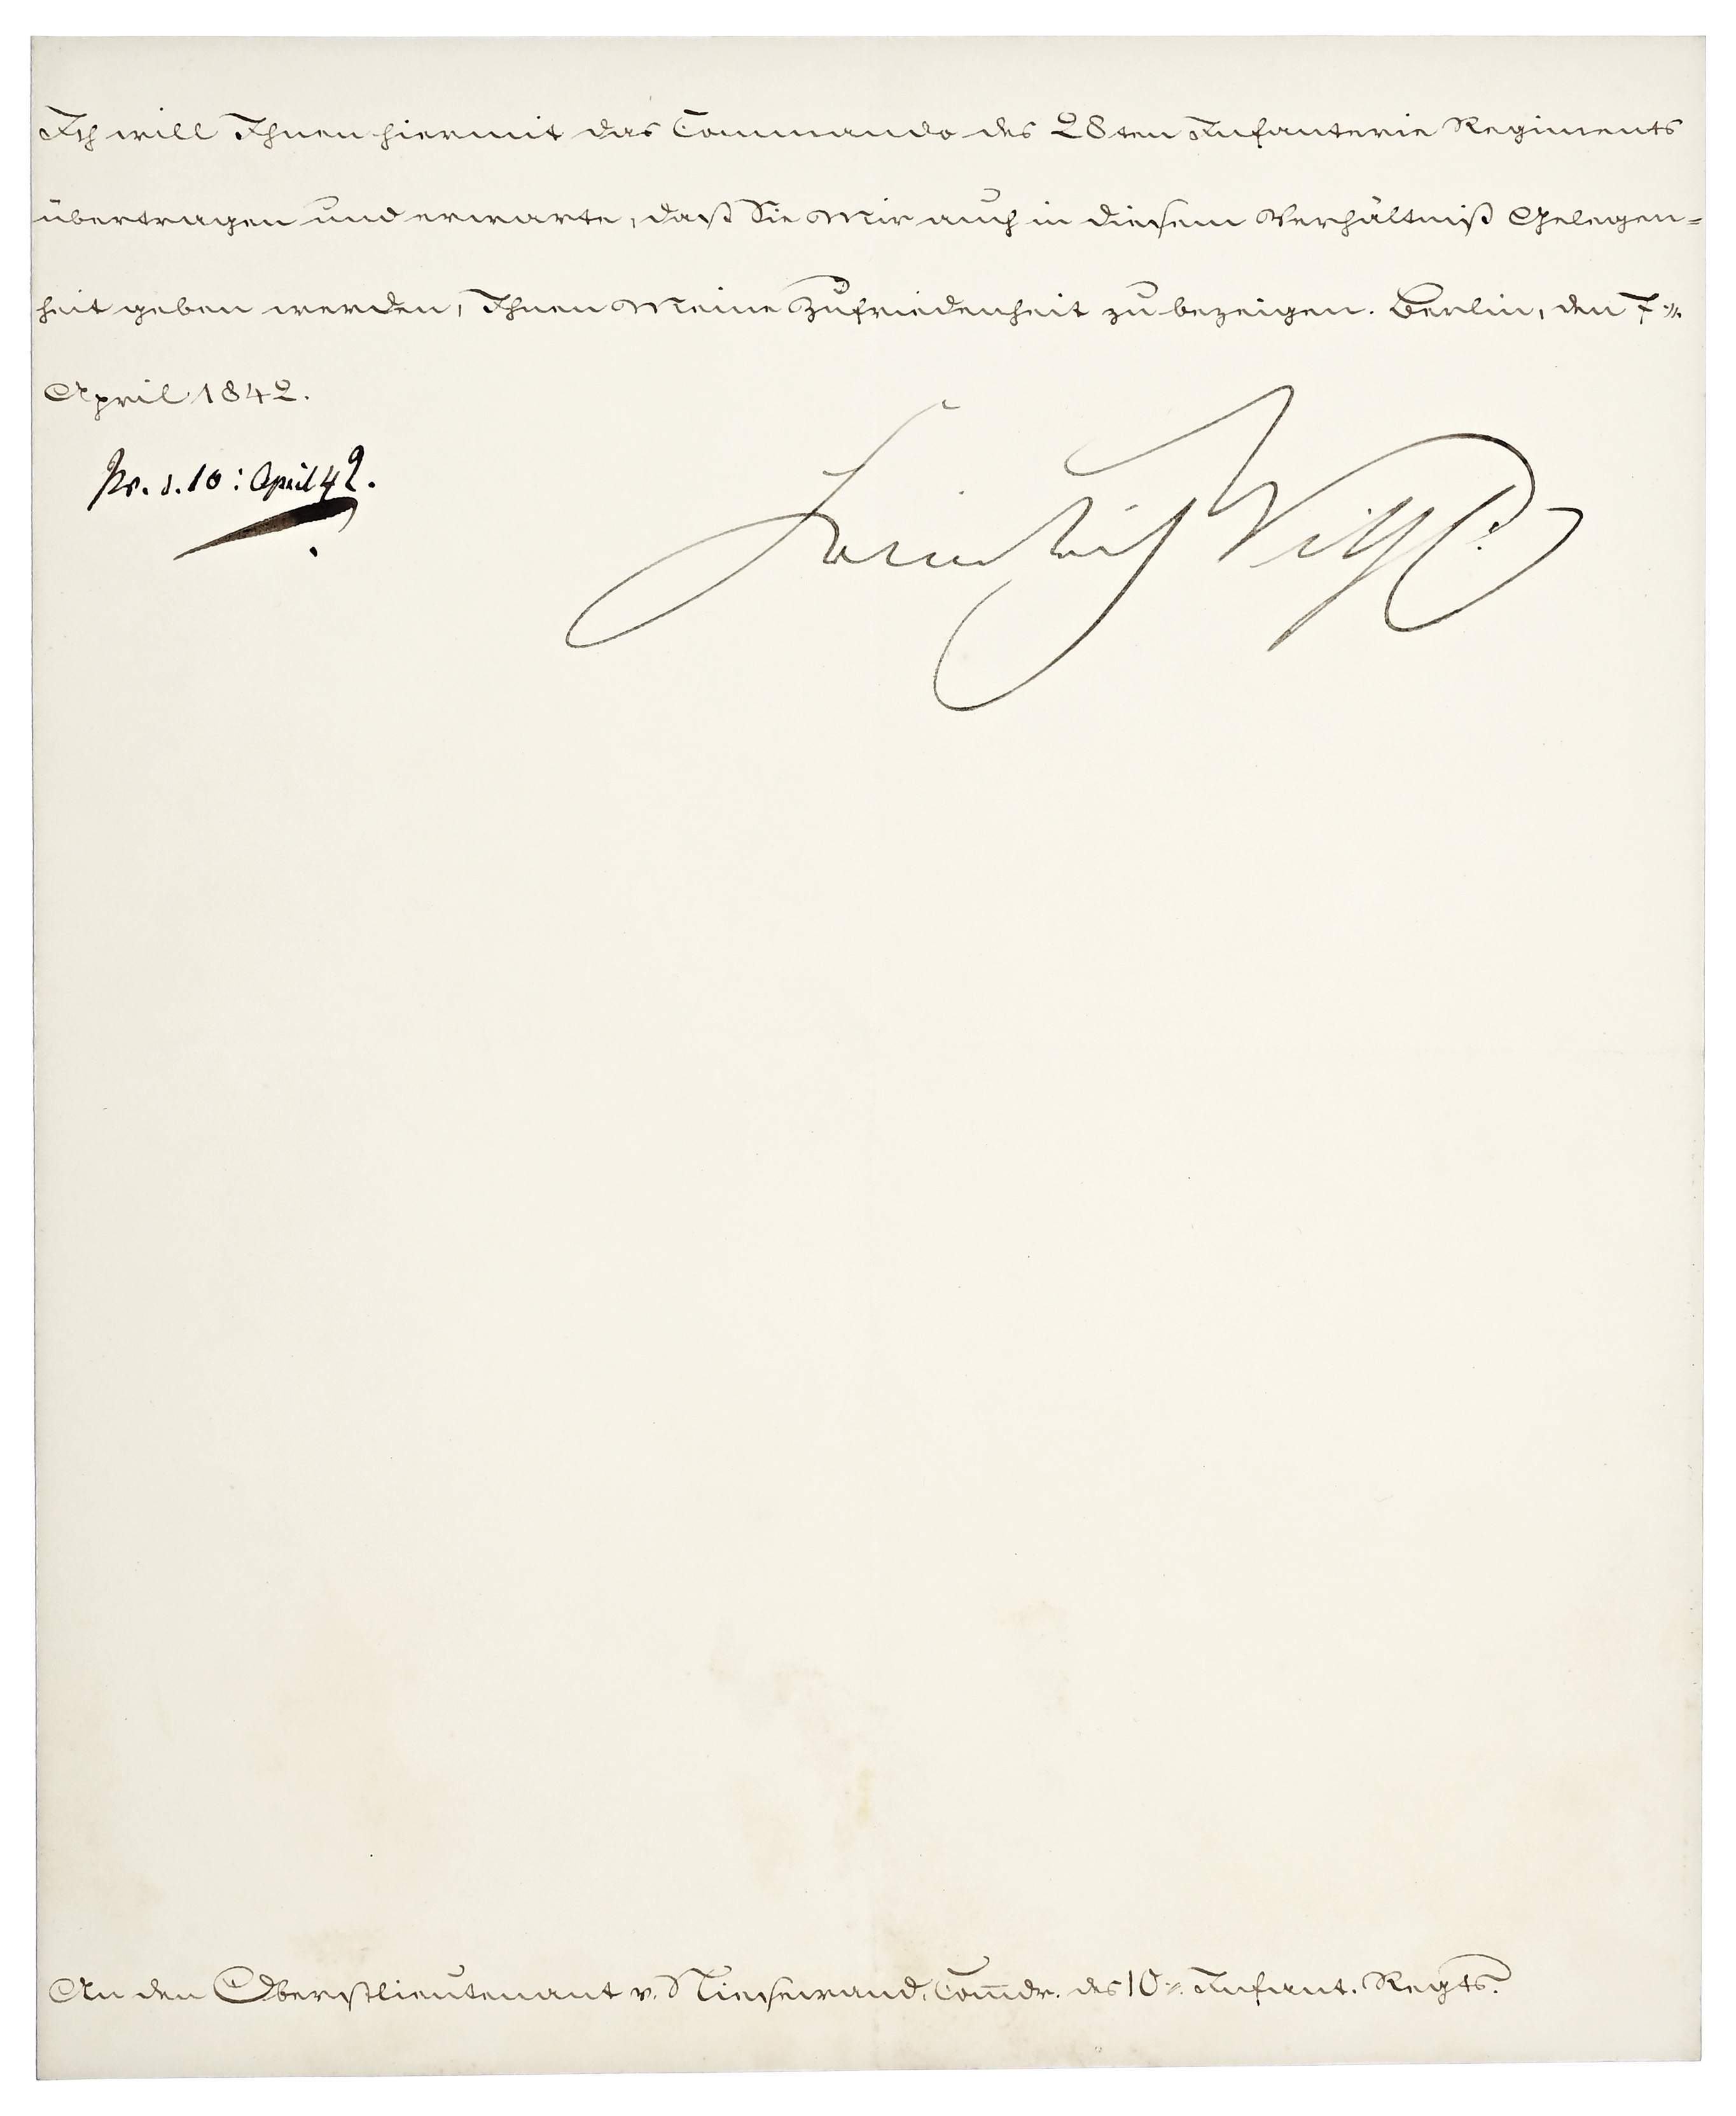 Ich will Ihnen hiermit das Commando des 28ten Infanterie Regiments
übertragen und erwarte, daß Sie Mir auch in diesem Verhältniß Gelegen=
heit geben werden, Ihnen Meine Zufriedenheit zu bezeigen. Berlin, den 7
April 1842.
Pr. d. 10: April 42.
Friedrich Wilh
An den Oberstlieutenant v. Niesewand, Com̅dr. des 10 Infant. Regts.